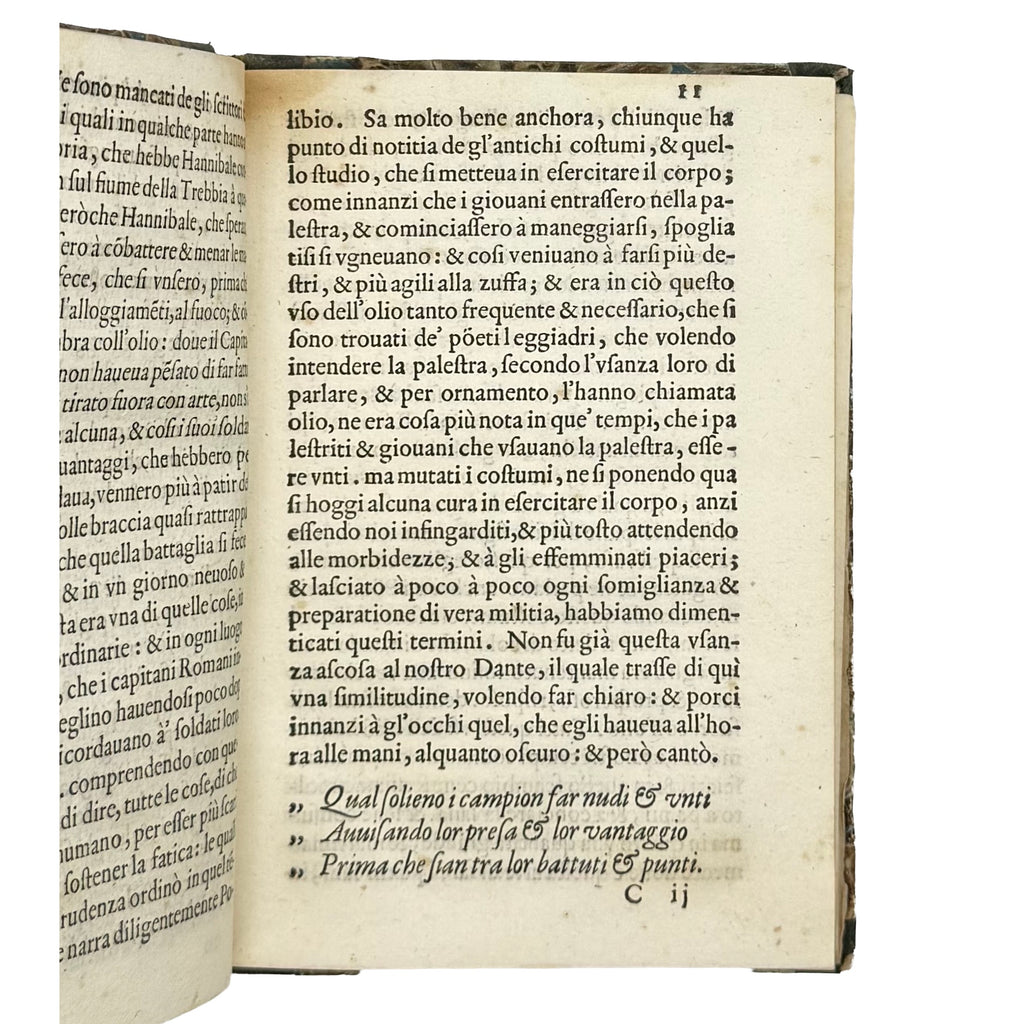 e sono mancati de gli scrittori
i quali in qualche parte hanno
che hebbe Hannibale
sul fiume della Trebbia à
che Hannibale, che
à cõbattere & menar le
fece, che ſi vnſero, prima
l'alloggiamẽti, al fuoco; &
coll'olio: doue il
non haueua pẽſato di far
tirato fuora con arte, non
alcuna, & coſi i ſuoi
che hebbero
vennero più à patir
braccia quaſi
che quella battaglia ſi fece
& in vn giorno neuoſo &
era vna di quelle coſe,
: & in ogni luogo
, che i capitani Romani
eglino hauendoſi poco
à' ſoldati loro
. comprendendo con
di dire, tutte le coſe, di
per eſſer più
ſoſtener la fatica: le
ordinò in quel
narra diligentemente Po-
11
libio. Sa molto bene anchora, chiunque ha
punto di notitia de gl'antichi coſtumi, & quel-
lo ſtudio, che ſi metteua in eſercitare il corpo;
come innanzi che i giouani entraſſero nella pa-
leſtra, & cominciaſſero à maneggiarſi, ſpoglia
tiſi ſi vgneuano: & coſi veniuano à farſi più de-
ſtri, & più agili alla zuffa; & era in ciò queſto
vſo dell'olio tanto frequente & neceſſario, che ſi
ſono trouati de' pöeti leggiadri, che volendo
intendere la paleſtra, ſecondo l'vſanza loro di
parlare, & per ornamento, l'hanno chiamata
olio, ne era coſa più nota in que' tempi, che i pa
leſtriti & giouani che vſauano la paleſtra, eſſe-
re vnti. ma mutati i coſtumi, ne ſi ponendo qua
ſi hoggi alcuna cura in eſercitare il corpo, anzi
eſſendo noi infingarditi, & più toſto attendendo
alle morbidezze, & à gli effemminati piaceri;
& laſciato à poco à poco ogni ſomiglianza &
preparatione di vera militia, habbiamo dimen-
ticati queſti termini. Non fu già queſta vſan-
za aſcoſa al noſtro Dante, il quale traſſe di quì
vna ſimilitudine, volendo far chiaro: & porci
innanzi à gl'occhi quel, che egli haueua all'ho-
ra alle mani, alquanto oſcuro: & però cantò.
„ Qual ſolieno i campion far nudi & vnti
„ Auuiſando lor preſa & lor vantaggio
„ Prima che ſian tra lor battuti & punti.
C ij